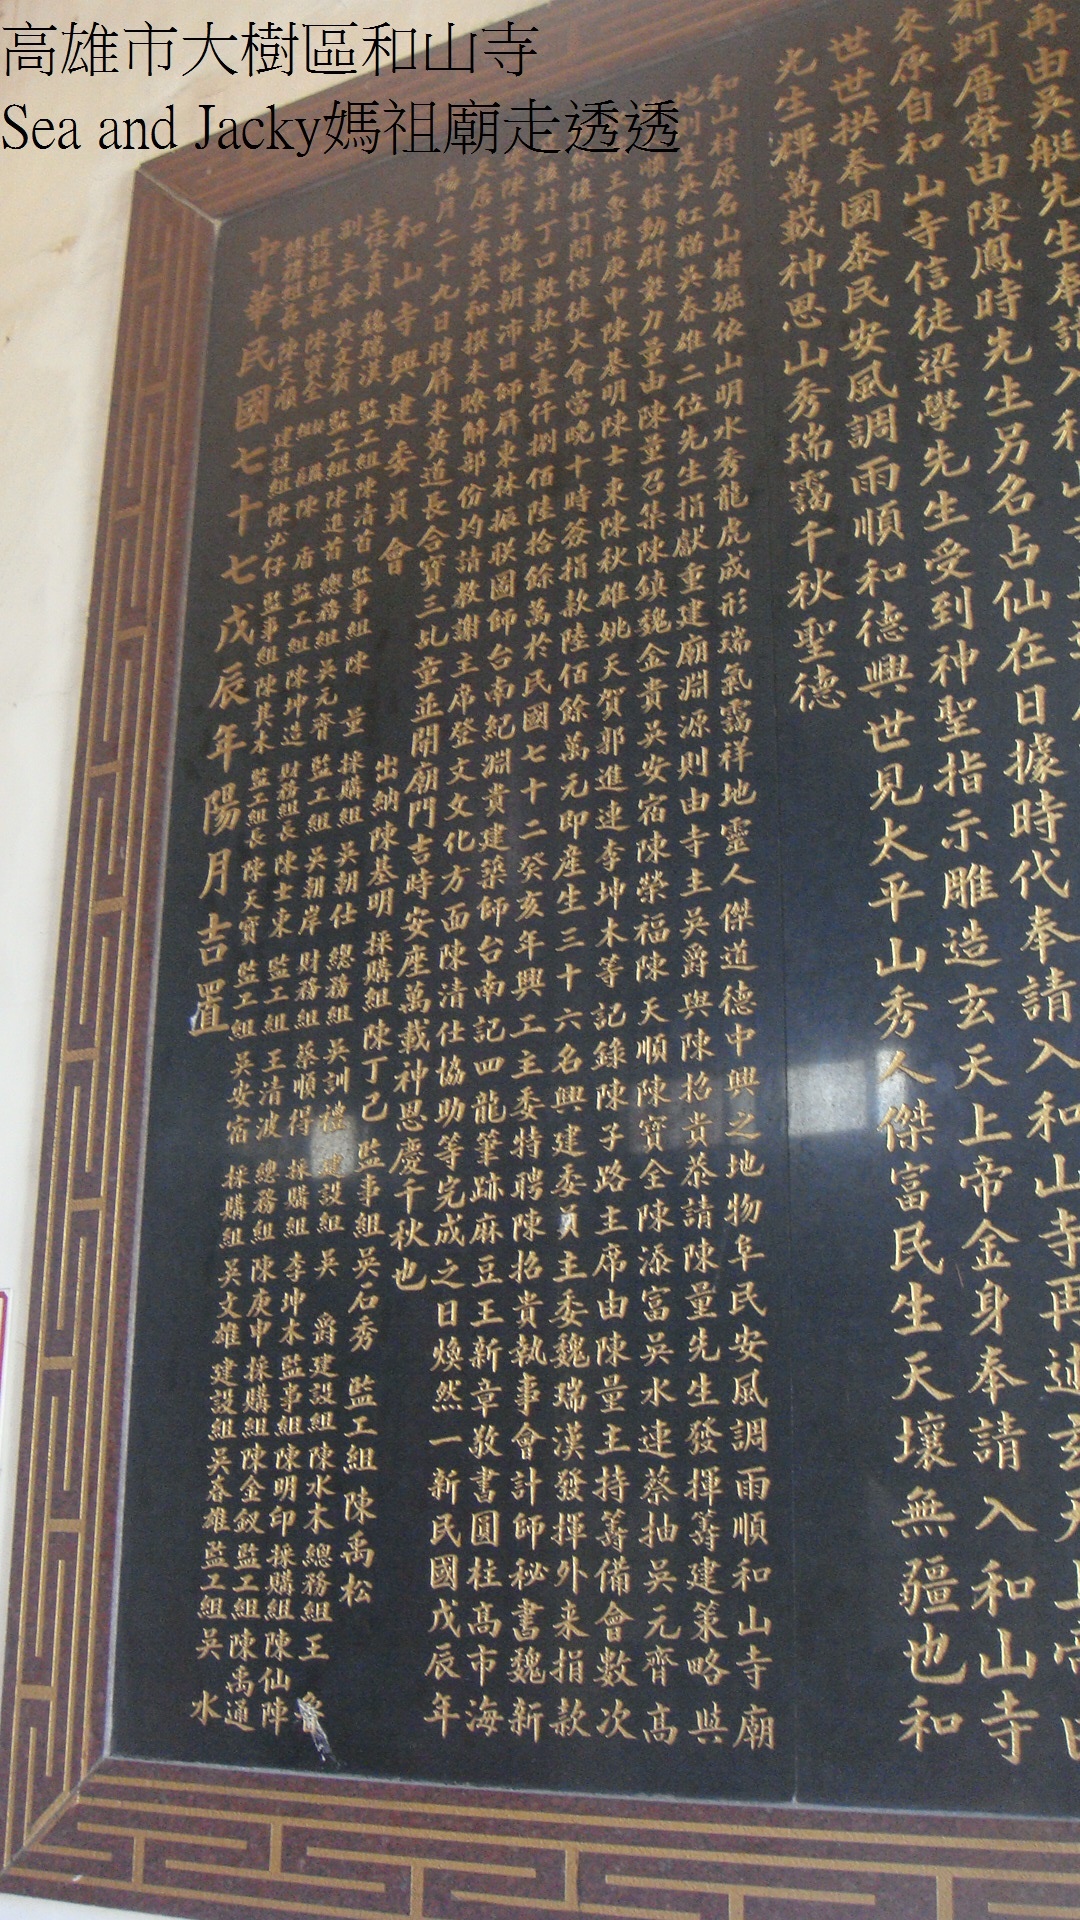 高雄市大樹區和山寺
Sea and Jacky媽祖廟走透透
再由吳艇先生奉請入和山寺
都蚵厝寮由陳鳳時先生另名占仙在日據時代奉請入和山寺再述玄天上帝
來原自和山寺信徒梁學先生受到神聖指示雕造玄天上帝金身奉請入和山寺
世世拱奉國泰民安風調雨順和德興世見太平山秀人傑富民生天壤無疆也和
光生輝萬載神恩山秀瑞靄千秋聖德
和山村原名山豬堀依山明水秀龍虎成形瑞氣靄祥地靈人傑道德中興之地物阜民安風調雨順和山寺廟
地則是吳紅猫吳春雄二位先生捐獻重建廟淵源則由寺主吳爵與陳招貴恭請陳量先生發揮籌建策略與
順發動群衆力量由陳量召集陳鎮魏金貴吳安宿陳榮福陳天順陳寶全陳添富吳水連蔡抽吳元齊高
王魯陳庚申陳基明陳士東陳秋雄姚天賀郭進連李坤木等記錄陳子路主席由陳量主持籌備會數次
然後訂開信徒大會當晚十時簽捐款陸佰餘萬元即產生三十六名興建委員主委魏瑞漢發揮外來捐款
誰村丁口數款共壹仟捌佰陸拾餘萬於民國七十二癸亥年興工主委特聘陳招貴執事會計師秘書魏新
陳子路陳朝沛日師屏東林振聯圖師台南紀淵貴建築師台南記四龍筆跡麻豆王新章敬書圓柱高市海
天居士葉英和撰未瞭解部份均請教謝主席登文文化方面陳清仕協助等完成之日煥然一新民國戊辰年
陽月二十九日聘屏東黃道長合寶三乩童並開廟門吉時安座萬載神恩慶千秋也
和山寺興建委員會
主任委員 魏瑞漢 監工組 陳清首 監事組 陳 量 出納 陳基明 採購組 陳丁己 監事組 吳石秀 監工組 陳禹松
副主委 黃文賓 監工組 陳進首 總務組 吳元齊 採購組 吳朝仕 總務組 吳訓禮 建設組 吳 爵 建設組 陳水木 總務組 王 魯
建設組長 陳寶全 組長 陳 盾 監工組 陳坤造 監工組 吳朝岸 財務組 蔡順得 採購組 李坤木 監事組 陳明印 採購組 陳仙陣
總務組長 陳天順 建設組 陳必仔 監事組 陳其木 財務組長 陳士東 監工組 王清波 總務組 陳庚申 採購組 陳金釵 監工組 陳禹通
監工組長 陳天寶 監工組 吳安宿 採購組 吳文雄 建設組 吳春雄 監工組 吳 水
中華民國七十七戊辰年陽月吉置